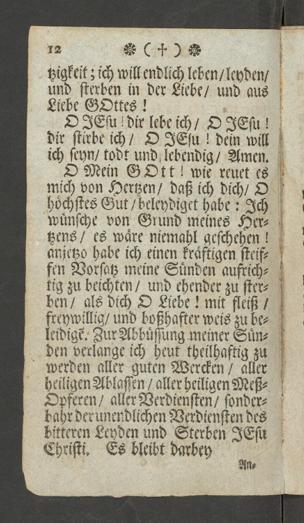 12 ❋ ( † ) ❋
tzigkeit; ich will endlich leben/ leyden/
und sterben in der Liebe/ und aus
Liebe GOttes!
O JEsu! dir lebe ich/ O JEsu!
dir stirbe ich/ O JEsu! dein will
ich seyn/ todt und lebendig/ Amen.
O Mein GOtt! wie reuet es
mich von Hertzen/ daß ich dich/ O
höchstes Gut/ beleydiget habe: Ich
wünsche von Grund meines Her-
tzens/ es wäre niemahl geschehen!
anjetzo habe ich einen kräftigen steif-
fen Vorsatz meine Sünden aufrich-
tig zu beichten/ und ehender zu ster-
ben/ als dich O Liebe! mit fleiß/
freywillig/ und boßhafter weis zu be-
leidigē. Zur Abbüssung meiner Sün-
den verlange ich heut theilhaftig zu
werden aller guten Wercken/ aller
heiligen Ablassen/ aller heiligen Meß-
Opferen/ aller Verdiensten/ sonder-
bahr der unendlichen Verdiensten des
bitteren Leyden und Sterben JEsu
Christi. Es bleibt darbey
An-